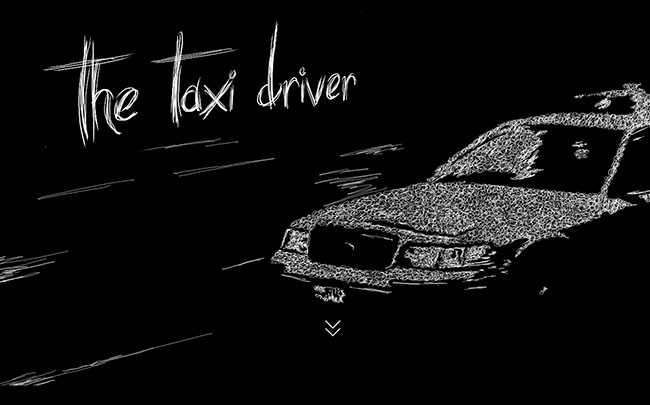 the taxi driver